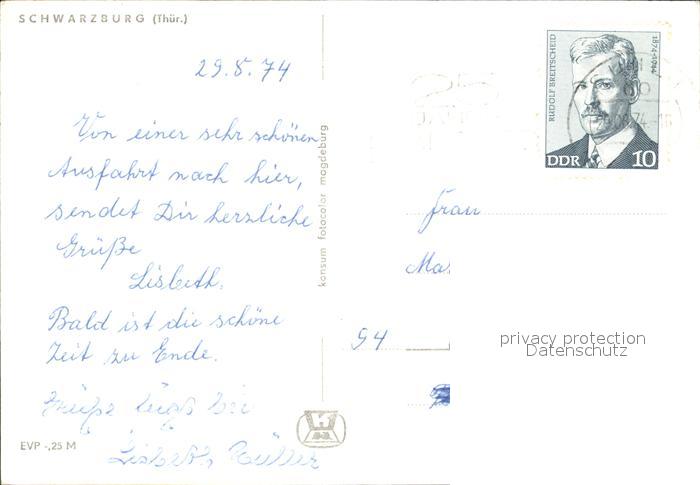 SCHWARZBURG (Thür.)
29.8.74
Von einer sehr schönen
Ausfahrt nach hier,
sendet Dir herzliche
Grüße
Lisbeth.
Bald ist die schöne
Zeit zu Ende.
Lisbeth
EVP -,25 M
konsum fotocolor magdeburg
RUDOLF BREITSCHEID
1874-1944
DDR 10
Frau
94
privacy protection
Datenschutz